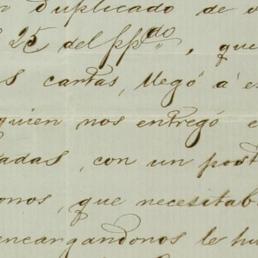 duplicado de
25 del ppdo, que
s cartas, llegó á
quien nos entregó
adas, con un
onos, que necesitab
encargandonos le hu